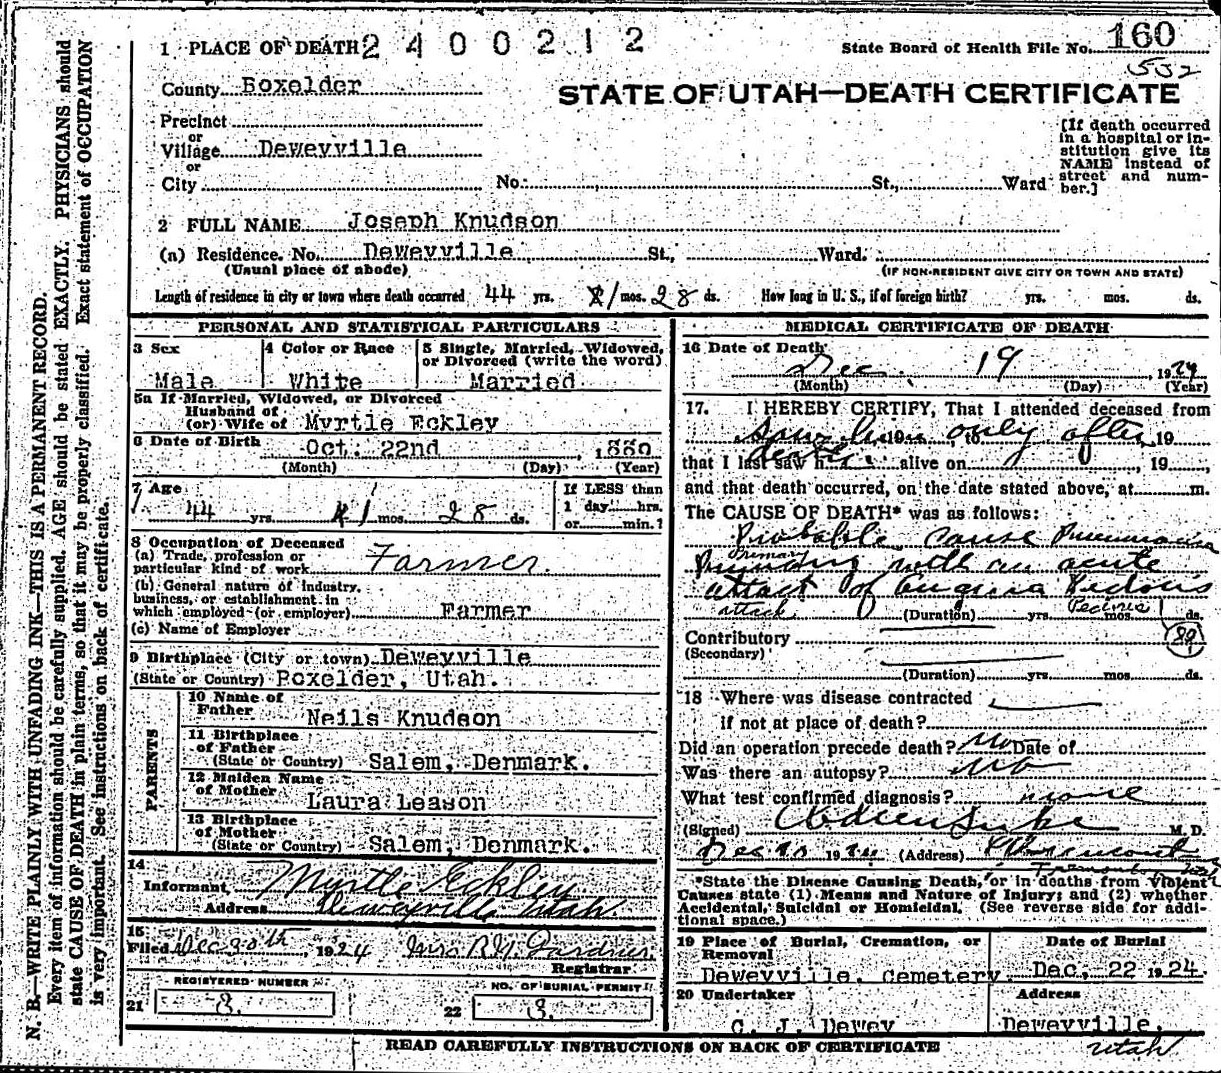 N. B.—WRITE PLAINLY WITH UNFADING INK—THIS IS A PERMANENT RECORD.
Every item of information should be carefully supplied. AGE should be stated EXACTLY. PHYSICIANS should
state CAUSE OF DEATH in plain terms, so that it may be properly classified. Exact statement of OCCUPATION
is very important. See instructions on back of certificate.
1 PLACE OF DEATH 2400212
State Board of Health File No. 160
552
County Boxelder
STATE OF UTAH—DEATH CERTIFICATE
Precinct
or
Village Deweyville
or
City No. St., Ward
[If death occurred
in a hospital or in-
stitution give its
NAME instead of
street and num-
ber.]
2 FULL NAME Joseph Knudson
(a) Residence. No. Deweyville St., Ward.
(Usual place of abode) (IF NON-RESIDENT GIVE CITY OR TOWN AND STATE)
Length of residence in city or town where death occurred 44 yrs. 1 mos. 28 ds. How long in U. S., if of foreign birth? yrs. mos. ds.
PERSONAL AND STATISTICAL PARTICULARS
3 Sex 4 Color or Race 5 Single, Married, Widowed,
or Divorced (write the word)
Male White Married
5a If Married, Widowed, or Divorced
Husband of
(or) Wife of Myrtle Eckley
6 Date of Birth Oct. 22nd, 1880
(Month) (Day) (Year)
7 Age If LESS than
1 day hrs.
44 yrs. 1 mos. 28 ds. or min.?
8 Occupation of Deceased
(a) Trade, profession or
particular kind of work Farmer.
(b) General nature of industry,
business, or establishment in
which employed (or employer) Farmer
(c) Name of Employer
9 Birthplace (City or town) Deweyville
(State or Country) Boxelder, Utah.
PARENTS
10 Name of
Father Neils Knudson
11 Birthplace
of Father
(State or Country) Salem, Denmark.
12 Maiden Name
of Mother Laura Leason
13 Birthplace
of Mother
(State or Country) Salem, Denmark.
14
Informant Myrtle Eckley
Address Deweyville Utah.
15
Filed Dec 20th, 1924 Mrs R.N. Gardner
Registrar
REGISTERED NUMBER NO. OF BURIAL PERMIT
21 8. 22 8.
MEDICAL CERTIFICATE OF DEATH
16 Date of Death
Dec. 19 1924
(Month) (Day) (Year)
17. I HEREBY CERTIFY, That I attended deceased from
Saw him only after 19
death
that I last saw h alive on , 19 ,
and that death occurred, on the date stated above, at m.
The CAUSE OF DEATH* was as follows:
Probable cause Pneumonia
Primary
with an acute
attack of Angina Pectoris
attack (Duration) yrs. Pectoris mos. 1 ds.
Contributory 89
(Secondary)
(Duration) yrs. mos. ds.
18 Where was disease contracted
if not at place of death?
Did an operation precede death? No Date of
Was there an autopsy? No
What test confirmed diagnosis? none
(Signed) M. D.
Dec 20 1924 (Address) Tremonton
*State the Disease Causing Death, or in deaths from Violent
Causes state (1) Means and Nature of Injury; and (2) whether
Accidental, Suicidal or Homicidal. (See reverse side for addi-
tional space.)
19 Place of Burial, Cremation, or
Removal Date of Burial
Deweyville. Cemetery Dec, 22 1924
20 Undertaker Address
C. J. Dewey Deweyville,
Utah
READ CAREFULLY INSTRUCTIONS ON BACK OF CERTIFICATE